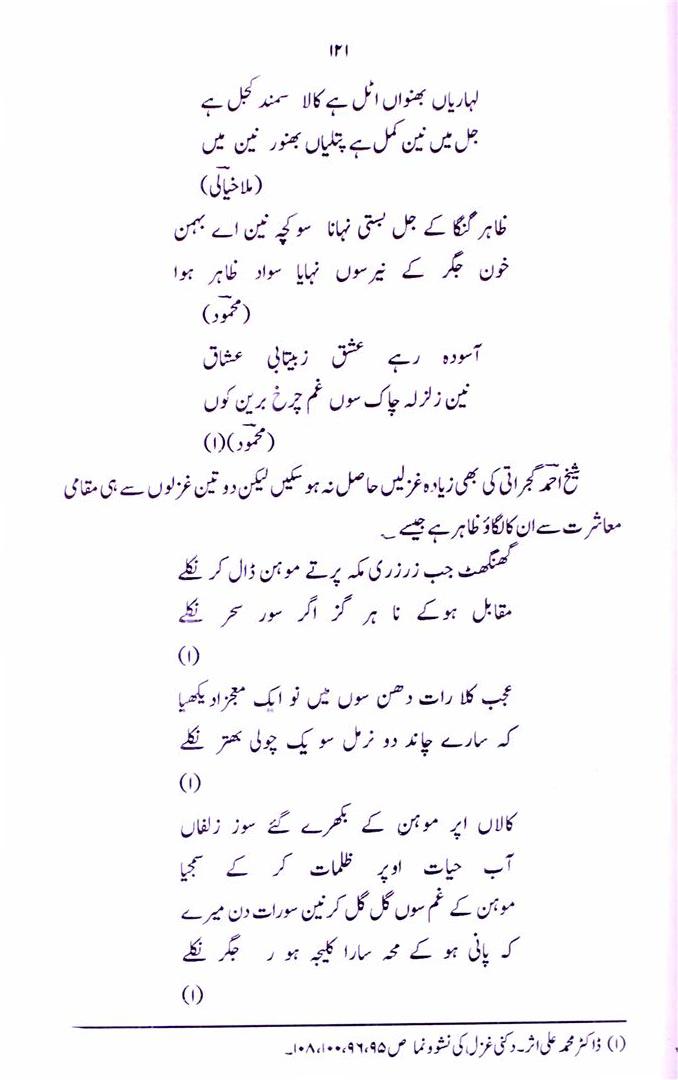 ۱۲۱
لہاریاں بھنواں اٹل ہے کالا سمند کجل ہے
جل میں نین کمل ہے پتلیاں بھنور نین میں
(ملا خیالی)
ظاہر گنگا کے جل بستی نہانا سو کچہ نین اے بہمن
خون جگر کے نیر سوں نہایا سواد ظاہر ہوا
(محمود)
آسودہ رہے عشق زبیتابی عشاق
نین زلزلہ چاک سوں غم چرخ برین کوں
(محمود)(۱)
شیخ احمد گجراتی کی بھی زیادہ غزلیں حاصل نہ ہو سکیں لیکن دو تین غزلوں سے ہی مقامی
معاشرت سے ان کا لگاؤ ظاہر ہے جیسے ۔
گھنگھٹ جب زرزری مکہ پرتے موہن ڈال کر نکلے
مقابل ہوکے نا ہر گز اگر سور سحر نکلے
(۱)
عجب کلا رات دھن سوں میں نو ایک معجزا دیکھیا
کہ سارے چاند دو نرمل سو یک چولی بھتر نکلے
(۱)
کالاں اپر موہن کے بکھرے گئے سوز زلفاں
آب حیات اوپر ظلمات کر کے سمجیا
موہن کے غم سوں گل گل کر نین سو رات دن میرے
کہ پانی ہو کے محہ سارا کلیجہ ہو ر جگر نکلے
(۱)
(۱) ڈاکٹر محمد علی اثر۔ دکنی غزل کی نشوونما ص ۹۵،۹۶،۱۰۰،۱۰۸۔